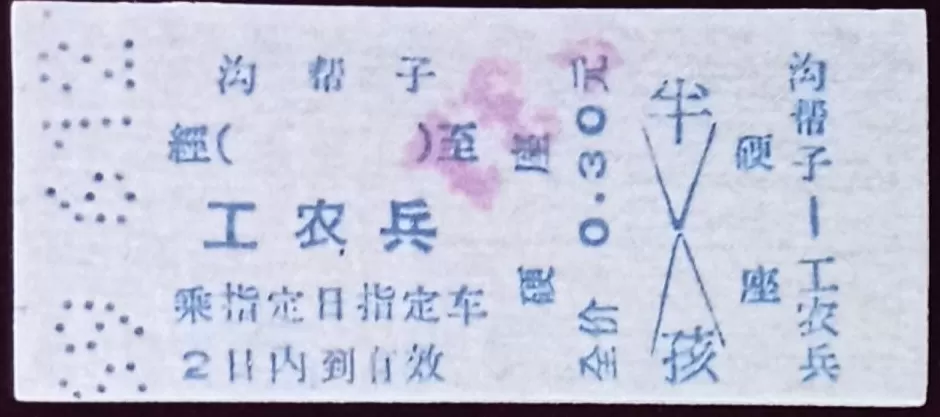 沟帮子
經( )至
工农兵
乘指定日指定车
2日内到有效
硬座
全价0.30元
半
孩
硬座
沟帮子—工农兵